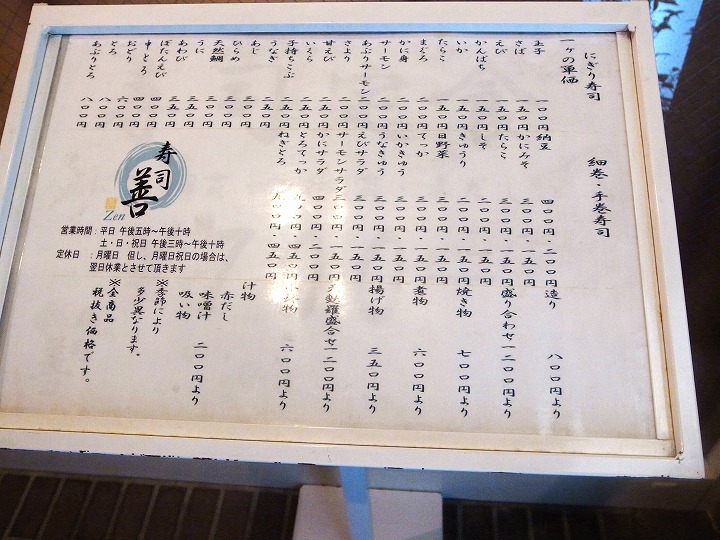 にぎり寿司
一ヶの単価
玉子 一〇〇円
さば 一五〇円
えび 一五〇円
かんぱち 一五〇円
いか 一五〇円
たらこ 一五〇円
まぐろ 二〇〇円
かに身 二〇〇円
サーモン 二〇〇円
あぶりサーモン 二〇〇円
さより 二〇〇円
甘えび 二五〇円
いくら 二五〇円
子持ちこぶ 二五〇円
うなぎ 二五〇円
あじ 三〇〇円
ひらめ 三〇〇円
天然鯛 三五〇円
うに 三五〇円
あわび 三五〇円
ぼたんえび 四〇〇円
中とろ 四〇〇円
おどり 六〇〇円
とろ 八〇〇円
あぶりとろ 八〇〇円
細巻・手巻寿司
納豆 四〇〇円・二〇〇円
かにみそ 三〇〇円・一五〇円
たらこ 三〇〇円・一五〇円
しそ
きゅうり
日野菜
てっか 三〇〇円・一五〇円
いかきゅう 三〇〇円・一五〇円
うなきゅう 三〇〇円・一五〇円
えびサラダ 三〇〇円・一五〇円
サーモンサラダ 三〇〇円・一五〇円
かにサラダ 四〇〇円・二〇〇円
とろてっか 九〇〇円・四五〇円
ねぎとろ 九〇〇円・四五〇円
造り 八〇〇円より
盛り合わせ 一二〇〇円より
焼き物 七〇〇円より
煮物 六〇〇円より
揚げ物 三五〇円より
天麩羅盛合せ 一二〇〇円より
六〇〇円より
汁物
赤だし
味噌汁 二〇〇円より
吸い物
※季節により
多少異なります。
※全商品
税抜き価格です。
寿司
善
Zen
営業時間：平日 午後五時～午後十時
土・日・祝日 午後三時～午後十時
定休日 ：月曜日 但し、月曜日祝日の場合は、
翌日休業とさせて頂きます